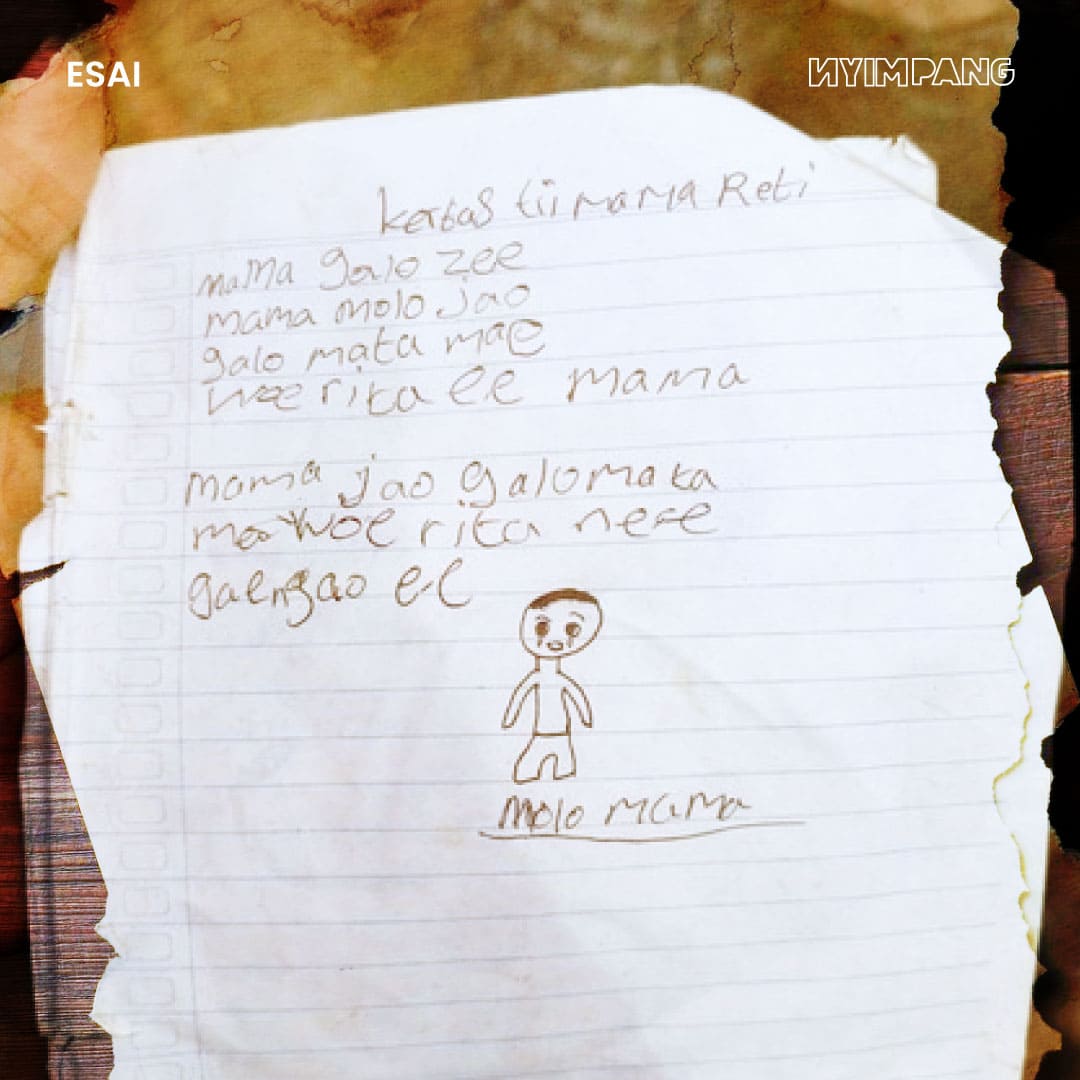 ESAI
NYIMPANG
kertas tii mama Reti
mama galo zee
mama molo jao
galo mata mae
woe rita ee mama
mama jao galo mata
mae woe rita nere
gaengao ee
molo mama